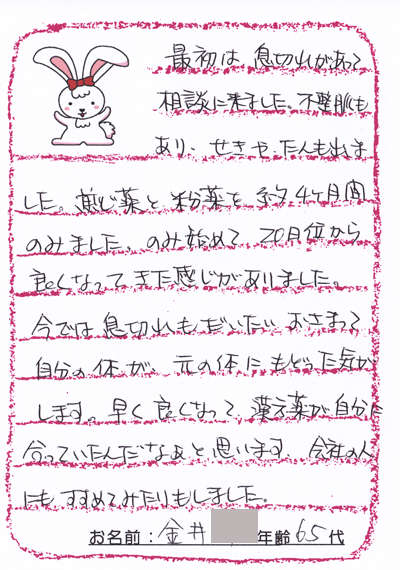 最初は、息切れがあって
相談に来ました。不整脈も
あり、せきや、たんも出ま
した。煎じ薬と粉薬を約4ヶ月間
のみました。のみ始めて20日位から
良くなってきた感じがありました。
今では息切れもだいたいおさまって
自分の体が、元の体にもどった気が
します。早く良くなって、漢方薬が自分に
合っていたんだなぁと思います。会社の人
にもすすめてみたりもしました。
お名前：金井 年齢65代